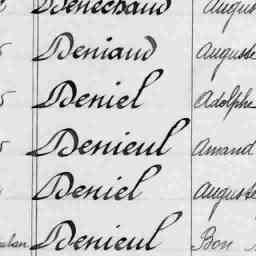 Dénéchaud Augus
Deniaud Auguste
Deniel Adolphe
Denieul Amand
Deniel Auguste
Denieul Bon